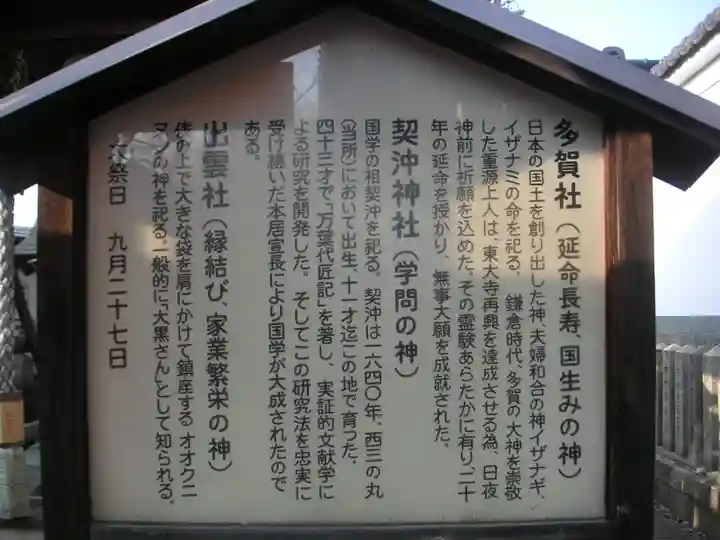 多賀社（延命長寿、国生みの神）
日本の国土を創り出した神、夫婦和合の神イザナギ、
イザナミの命を祀る。鎌倉時代、多賀の大神を崇敬
した重源上人は、東大寺再興を達成させる為、日夜
神前に祈願を込めた。その霊験あらたかに有り、二十
年の延命を授かり、無事大願を成就された。
契沖神社（学問の神）
国学の祖契沖を祀る。契沖は一六四〇年、西三の丸
（当所）において出生、十一才迄この地で育つた。
四十三才で、「万葉代匠記」を著し、実証的文献学に
よる研究を開発した。そしてこの研究法を忠実に
受け継いだ本居宣長により国学が大成されたので
ある。
出雲社（縁結び、家業繁栄の神）
俵の上で大きな袋を肩にかけて鎮座する オオクニ
ヌシの神を祀る。一般的に、"大黒さん"として知られる。
祭日 九月二十七日